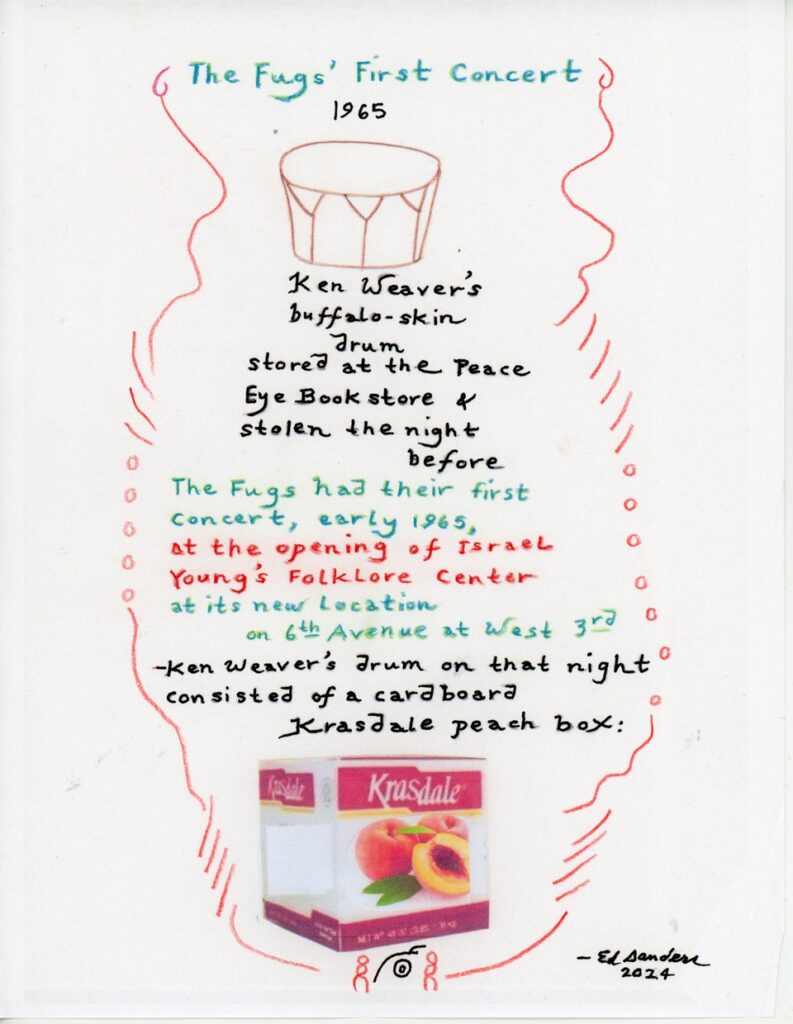 The Fugs' First Concert
1965
Ken Weaver's
buffalo-skin
drum
stored at the Peace
Eye Bookstore &
stolen the night
before
The Fugs had their first
concert, early 1965,
at the opening of Israel
Young's Folklore Center
at its new location
on 6th Avenue at West 3rd
-Ken Weaver's drum on that night
consisted of a cardboard
Krasdale peach box:
Krasdale
Krasdale
- Ed Sanders
2024